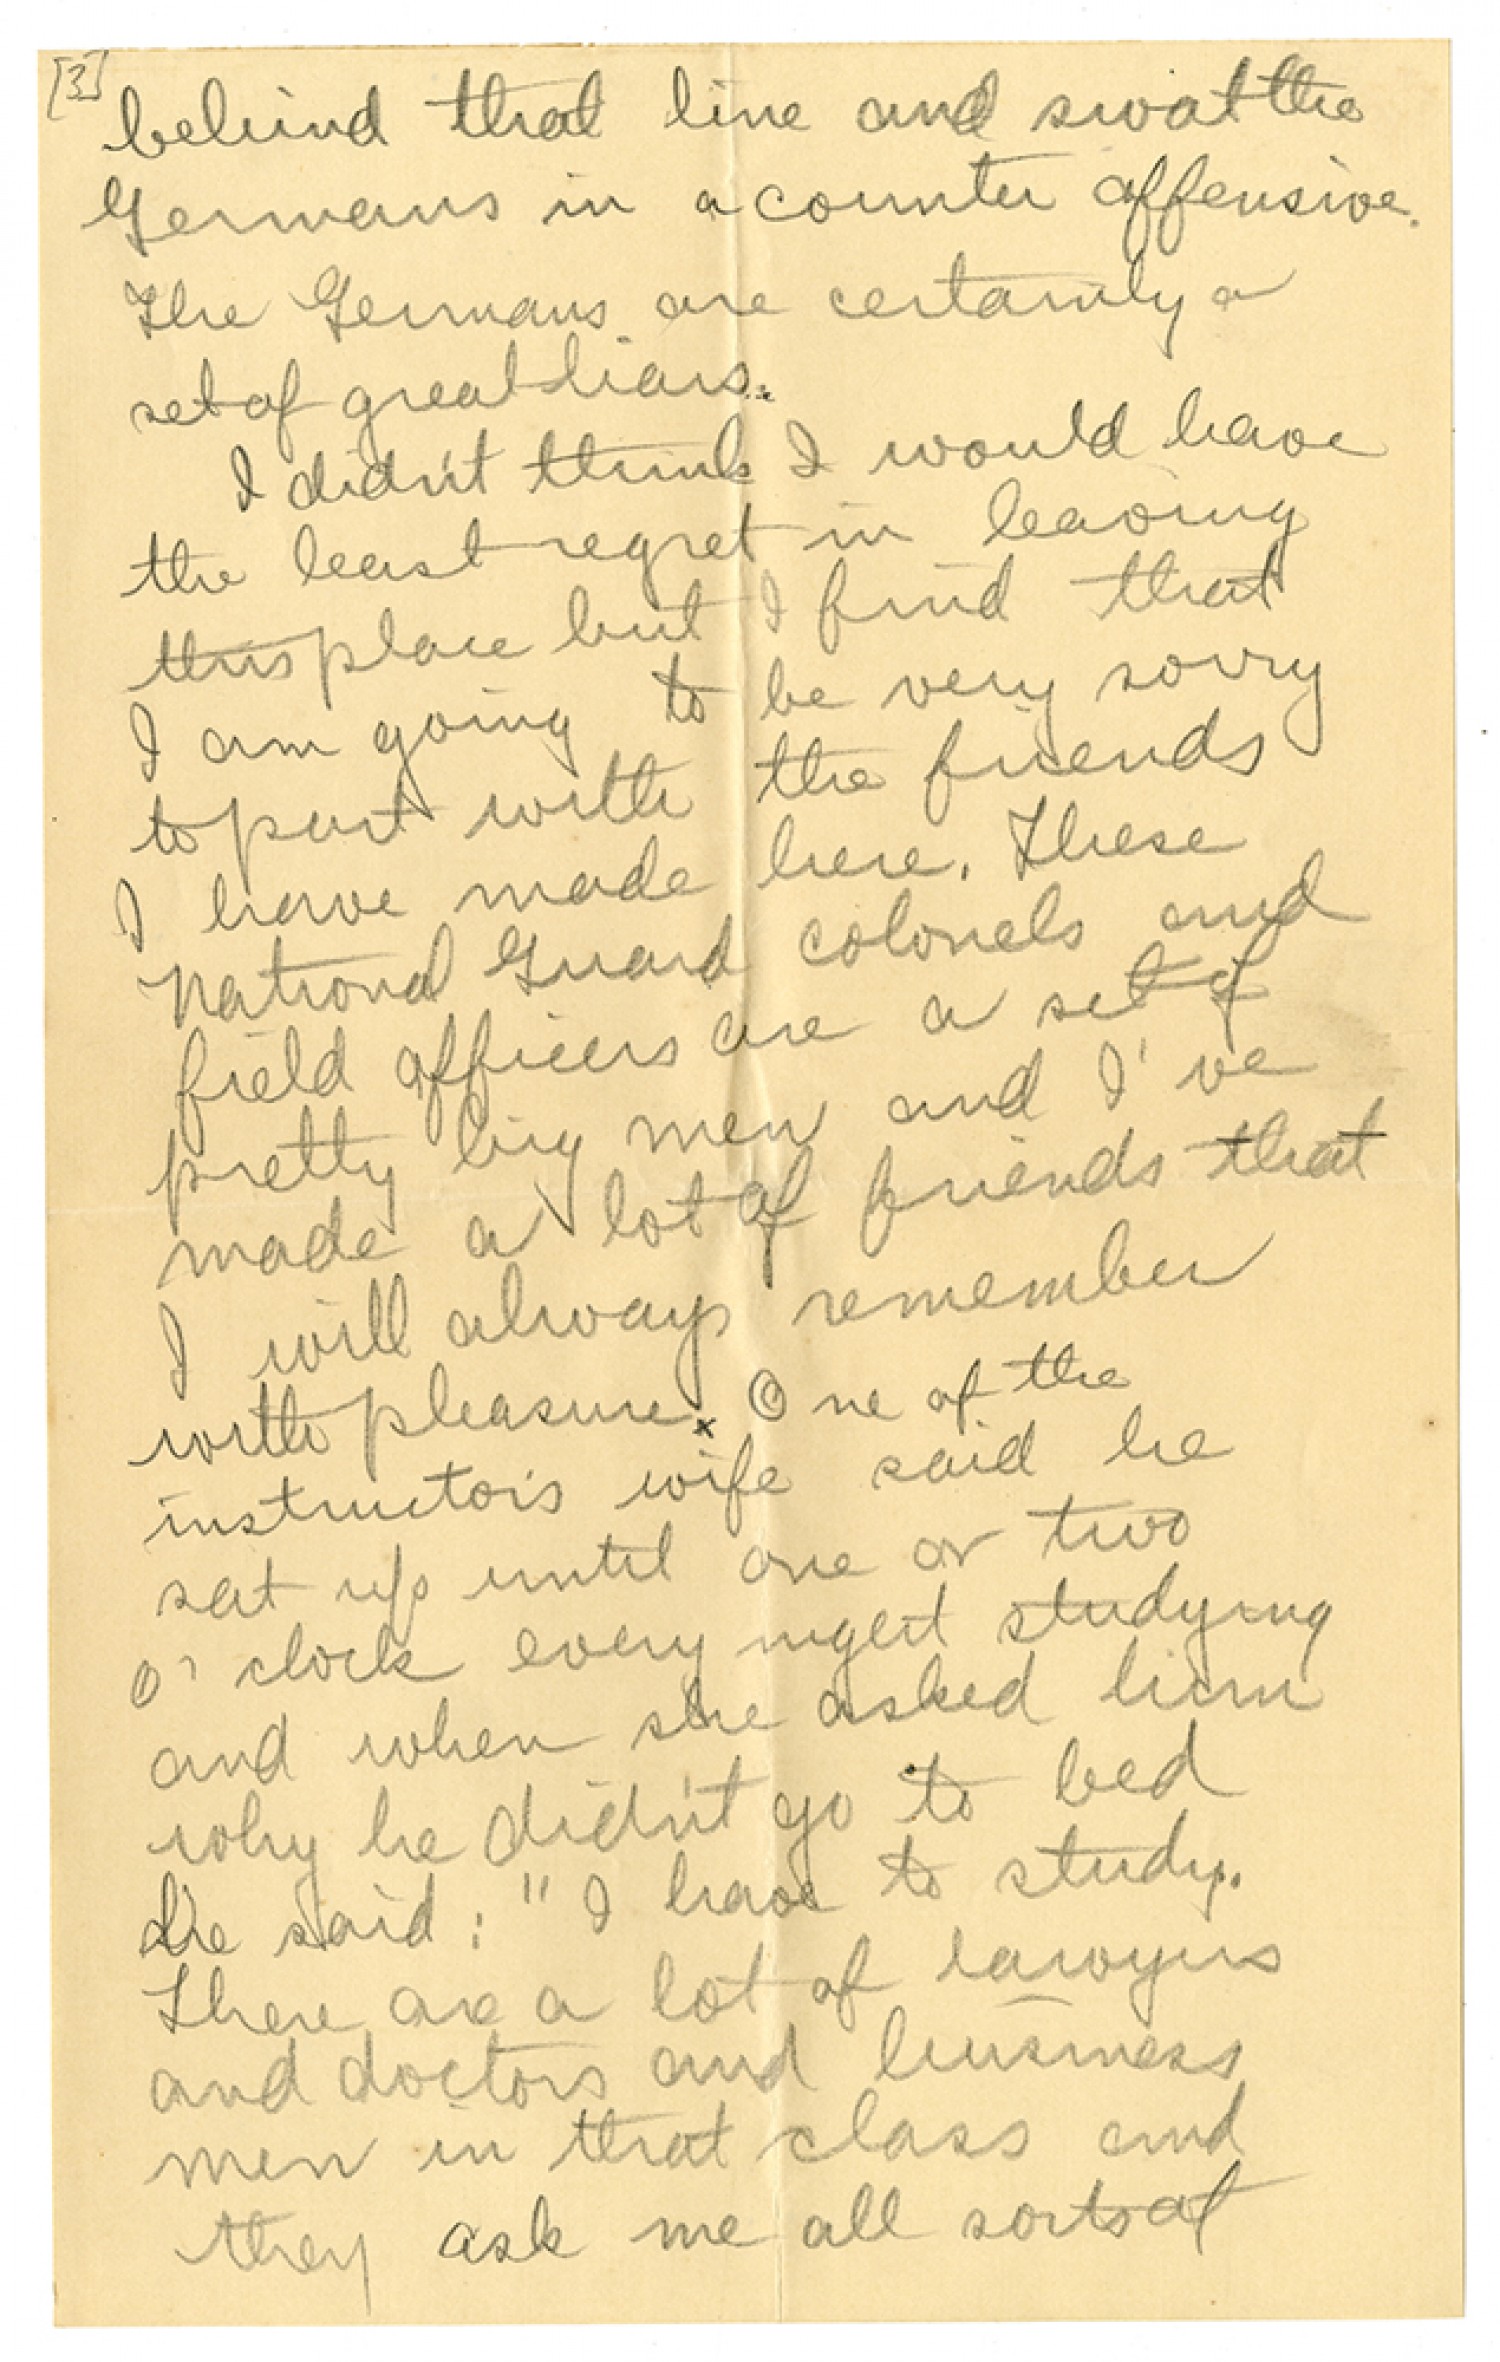 [3]
behind that line and swat the
Germans in a counter offensive.
The Germans are certainly a
set of great liars.
I didn't think I would have
the least regret in leaving
this place but I find that
I am going to be very sorry
to part with the friends
I have made here. These
National Guard colonels and
field officers are a set of
pretty big men and I've
made a lot of friends that
I will always remember
with pleasure. x One of the
instructor's wife said he
sat up until one or two
o'clock every night studying
and when she asked him
why he didn't go to bed
He said: "I have to study.
There are a lot of lawyers
and doctors and business
men in that class and
they ask me all sorts of